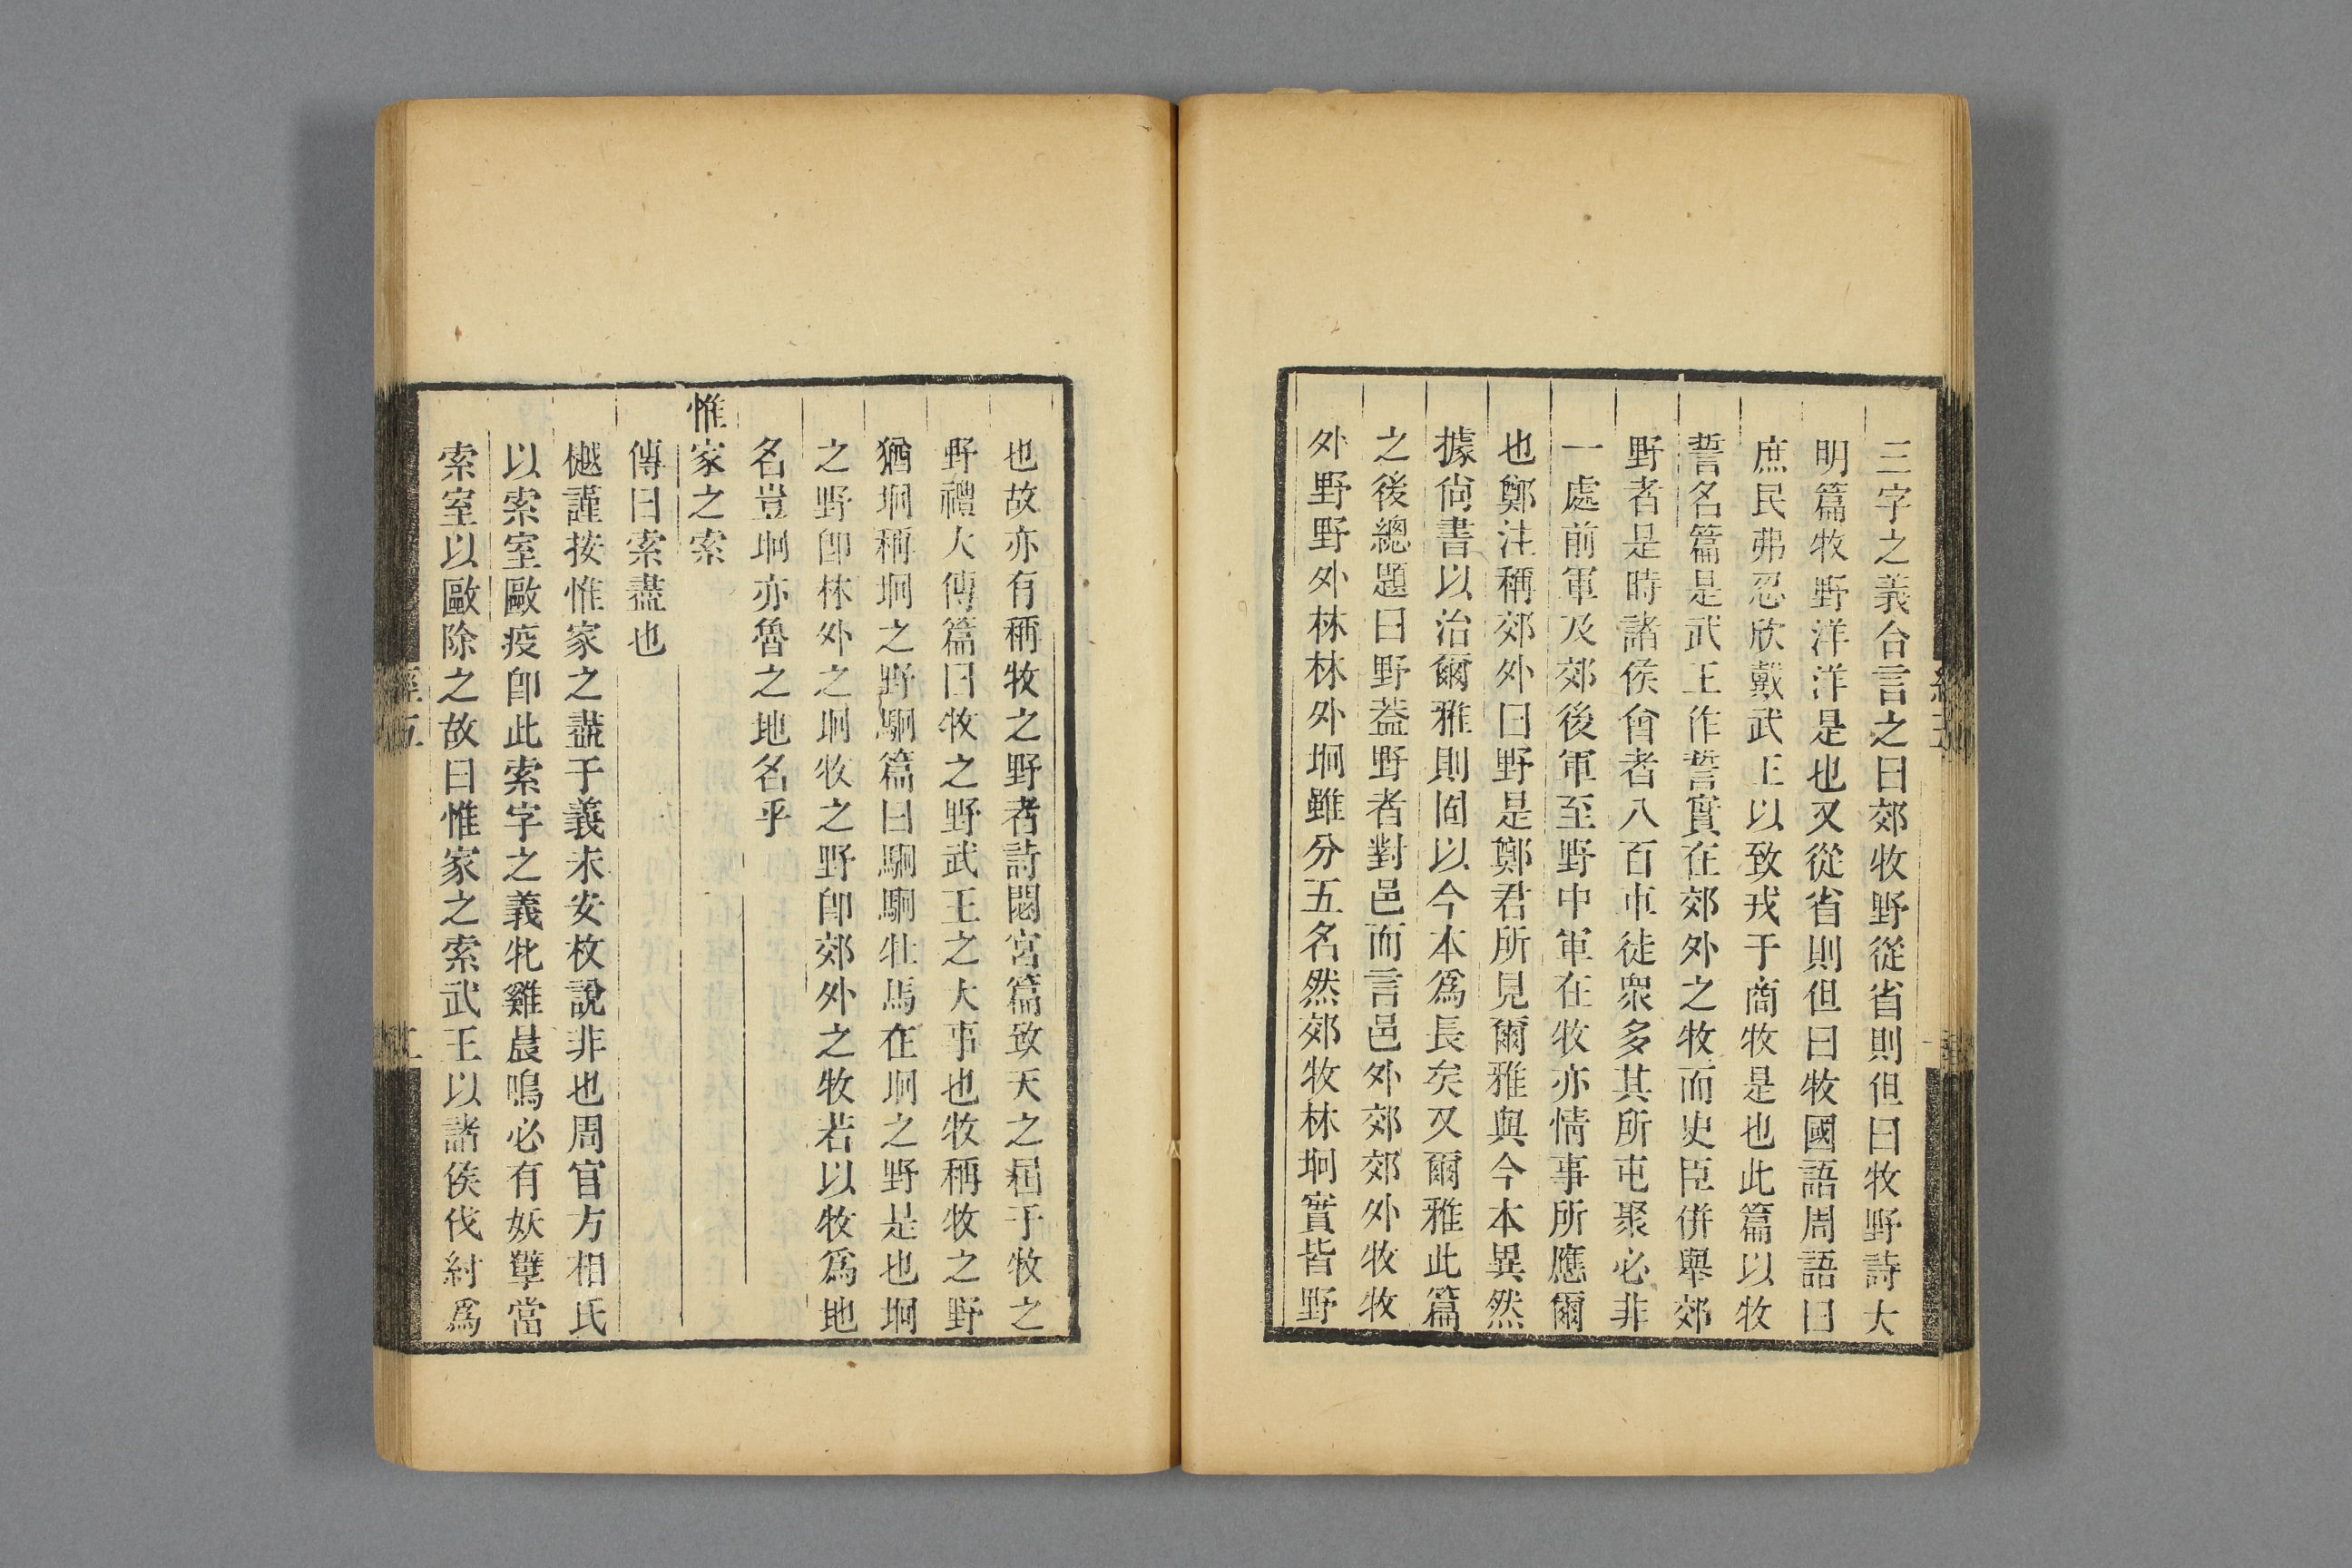 三字之義合言之曰郊牧野從省則但曰牧野詩大
明篇牧野洋洋是也又從省則但曰牧國語周語曰
庶民弗忍欣戴武王以致戎于商牧是也此篇以牧
誓名篇是武王作誓實在郊外之牧而史臣併舉郊
野者是時諸侯會者八百車徒衆多其所屯聚必非
一處前軍及郊後軍至野中軍在牧亦情事所應爾
也鄭注稱郊外曰野是鄭君所見爾雅與今本異然
據尙書以治爾雅則固以今本爲長矣又爾雅此篇
之後總題曰野葢野者對邑而言邑外郊郊外牧牧
外野野外林林外坰雖分五名然郊牧林坰實皆野
也故亦有稱牧之野者詩閟宮篇致天之屆于牧之
野禮大傳篇曰牧之野武王之大事也牧稱牧之野
猶坰稱坰之野駉篇曰駉駉牡馬在坰之野是也坰
之野卽林外之坰牧之野卽郊外之牧若以牧爲地
名豈坰亦魯之地名乎
惟家之索
傳曰索盡也
樾謹按惟家之盡于義未安枚說非也周官方相氏
以索室歐疫卽此索字之義牝雞晨鳴必有妖孽當
索室以歐除之故曰惟家之索武王以諸侯伐紂爲